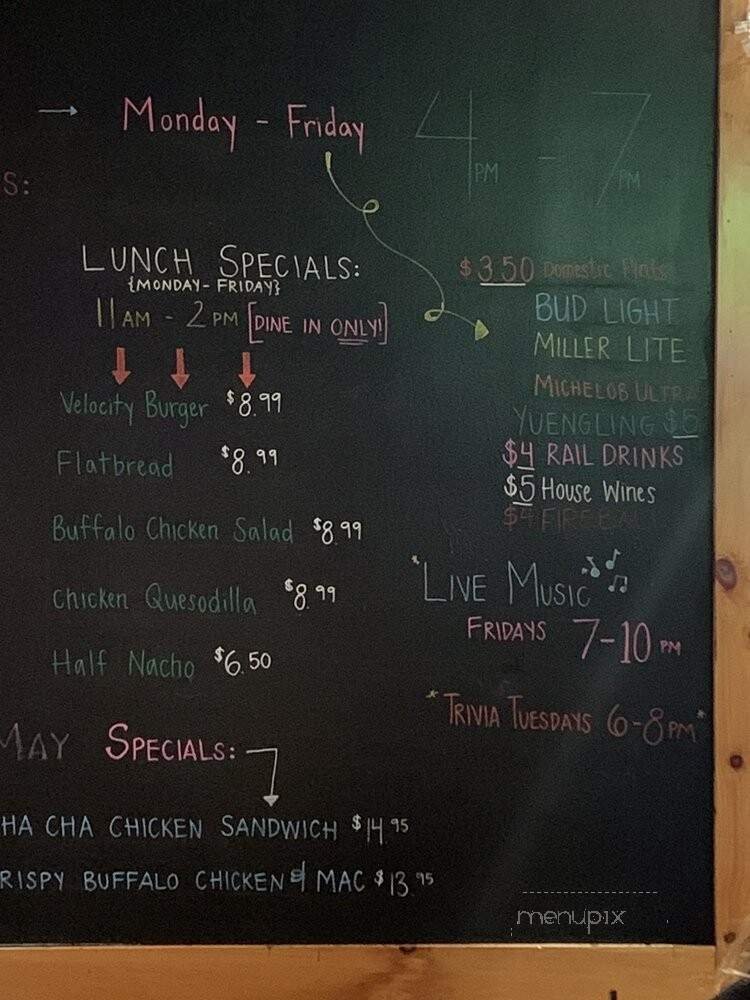 → Monday - Friday 4PM - 7PM
S:
LUNCH SPECIALS:
{MONDAY-FRIDAY}
11AM - 2PM [DINE IN ONLY!]
Velocity Burger $8.99
Flatbread $8.99
Buffalo Chicken Salad $8.99
Chicken Quesodilla $8.99
Half Nacho $6.50
$3.50 Domestic Pints
BUD LIGHT
MILLER LITE
MICHELOB ULTRA
YUENGLING $5
$4 RAIL DRINKS
$5 House Wines
$4 FIREBALL
*LIVE MUSIC*
FRIDAYS 7-10 PM
*TRIVIA TUESDAYS 6-8PM*
MAY SPECIALS:
HA CHA CHICKEN SANDWICH $14.95
RISPY BUFFALO CHICKEN & MAC $13.95
menupix